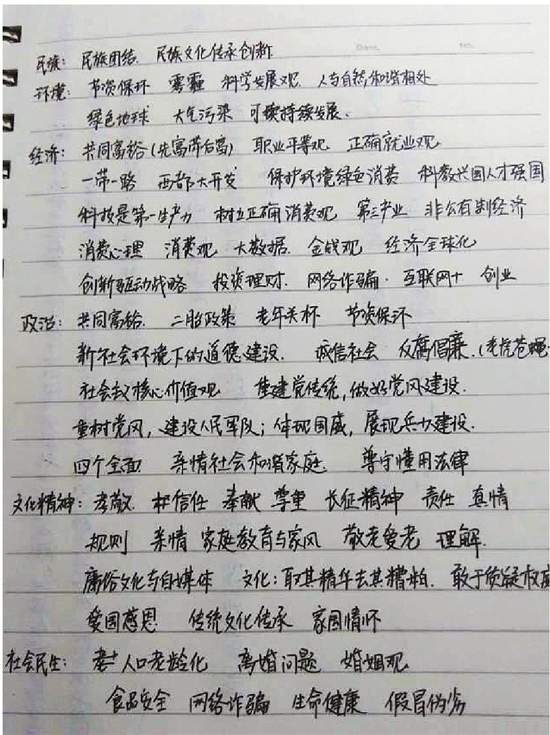 民族：民族团结、民族文化传承创新
环境：节资保环 雾霾 科学发展观 人与自然和谐相处
绿色地球 大气污染 可续持续发展.
经济：共同富裕(先富带后富) 职业平等观 正确就业观
一带一路 西部大开发 保护环境绿色消费 科教兴国人才强国
科技是第一生产力 树立正确消费观 第三产业 非公有制经济
消费心理 消费观 大数据 金钱观 经济全球化
创新驱动战略 投资理财. 网络诈骗. 互联网+ 创业
政治：共同富裕. 二胎政策 老年关怀 节资保环
新社会环境下的道德建设. 诚信社会 反腐倡廉.(老虎苍蝇
社会主义核心价值观 重建党传统,做好党风建设.
重树党风,建设人民军队;体现国威,展现兵力建设.
四个全面 亲情社会和谐家庭 尊守懂用法律
文化精神：孝敬. 信任 奉献 尊重 长征精神 责任 真情
规则 亲情 家庭教育与家风 敬老爱老 理解.
庸俗文化与自媒体 文化:取其精华去其糟粕. 敢于质疑权威
爱国感恩 传统文化传承 家国情怀
社会民生： 人口老龄化 离婚问题 婚姻观
食品安全 网络诈骗 生命健康 假冒伪劣